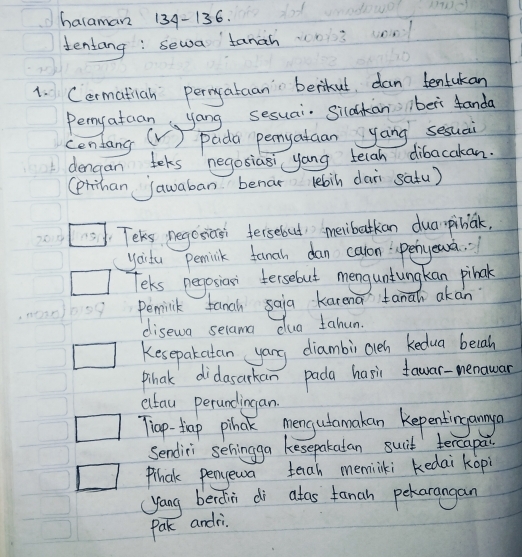 halaman 134-136.
tentang : sewa tanah
1. Cermatilah pernyataan berikut dan tentukan
pernyataan yang sesuai. Silahkan beri tanda
centang (✓) pada pernyataan yang sesuai
dengan teks negosiasi yang telah dibacakan.
(pilihan jawaban benar lebih dari satu)
Teks negosiasi tersebut melibatkan dua pihak,
yaitu pemilik tanah dan calon penyewa.
Teks negosiasi tersebut menguntungkan pihak
pemilik tanah saja karena tanah akan
disewa selama dua tahun.
Kesepakatan yang diambil oleh kedua belah
pihak didasarkan pada hasil tawar-menawar
atau perundingan.
Tiap-tiap pihak mengutamakan kepentingannya
sendiri sehingga kesepakatan sulit tercapai.
Pihak penyewa telah memiliki kedai kopi
yang berdiri di atas tanah pekarangan
pak andri.